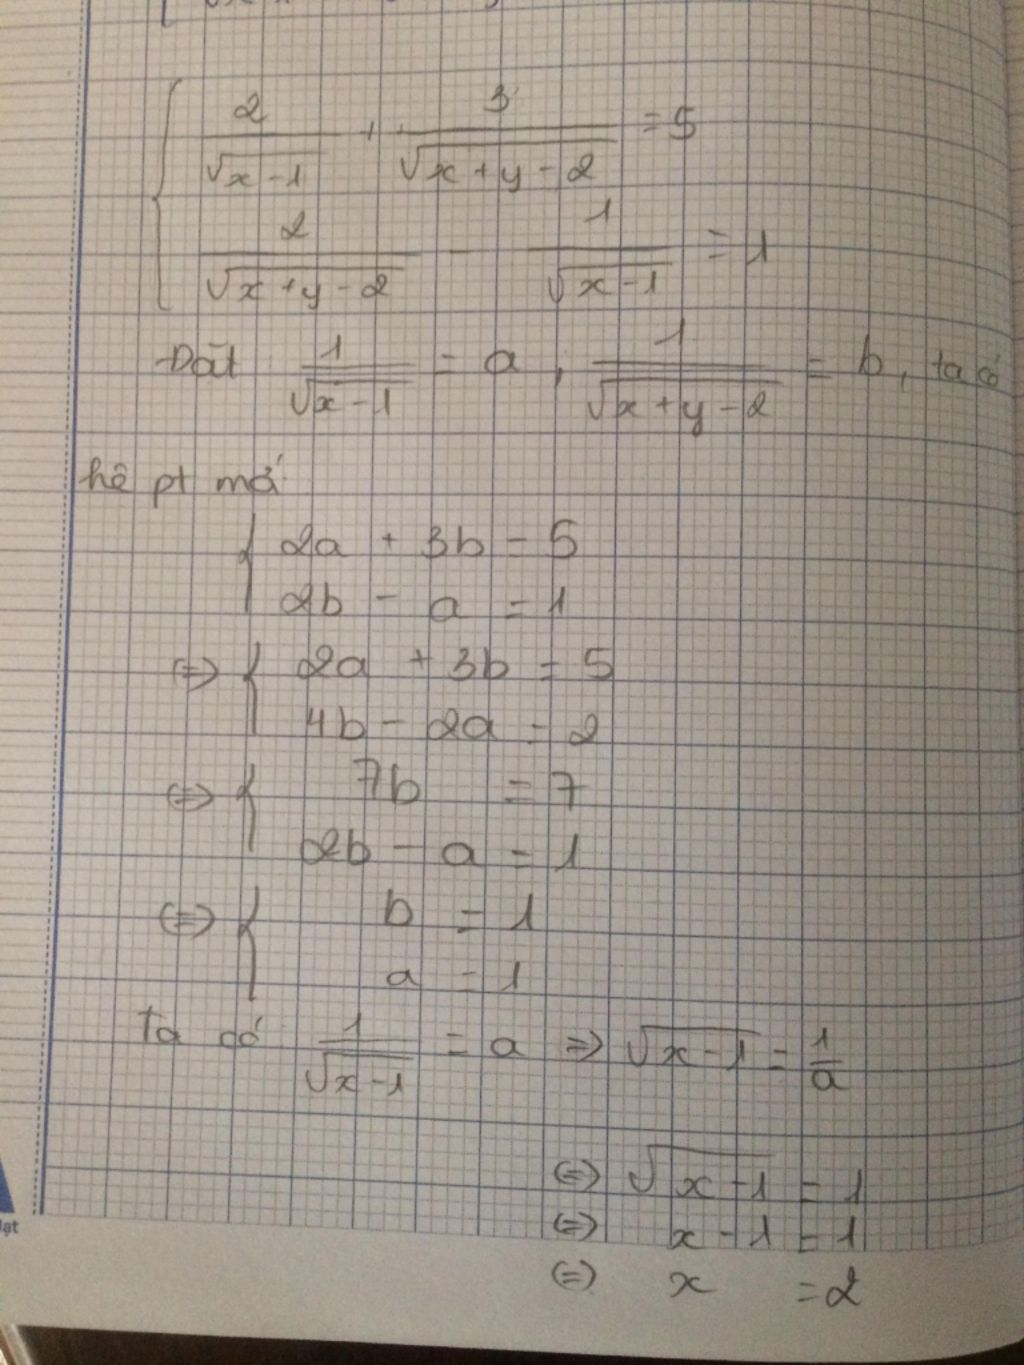 2/√(x-1) + 3/√(x+y-2) = 5
2/√(x+y-2) - 1/√(x-1) = 1
Đặt 1/√(x-1) = a, 1/√(x+y-2) = b, ta có
hệ pt mới
{ 2a + 3b = 5
2b - a = 1
⇔ { 2a + 3b = 5
4b - 2a = 2
⇔ { 7b = 7
2b - a = 1
⇔ { b = 1
a = 1
Ta có 1/√(x-1) = a ⇒ √(x-1) = 1/a
⇔ √(x-1) = 1
⇔ x - 1 = 1
⇔ x = 2